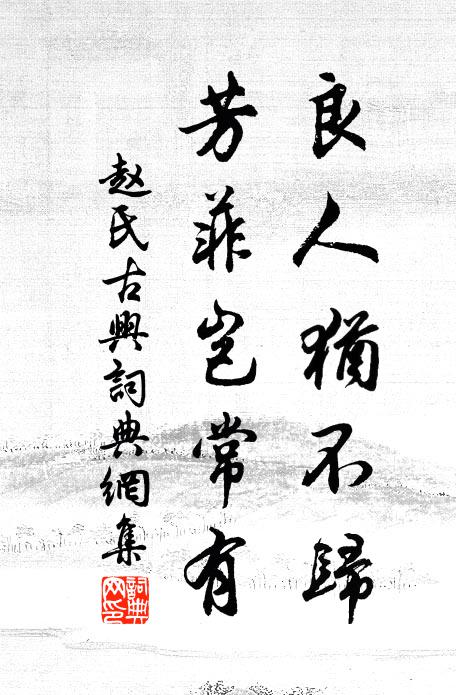 良人猶不歸
芳菲豈常有
赵氏古典詞典網集
詞典网印